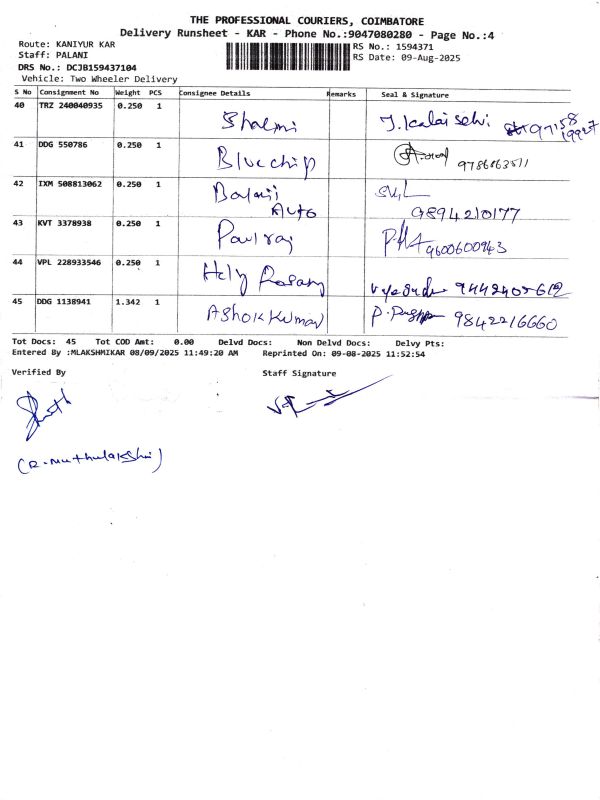 THE PROFESSIONAL COURIERS, COIMBATORE
Delivery Runsheet - KAR - Phone No.:9047080280 - Page No.:4
Route: KANIYUR KAR
Staff: PALANI
RS No.: 1594371
RS Date: 09-Aug-2025
DRS No.: DCJB159437104
Vehicle: Two Wheeler Delivery
S No Consignment No Weight PCS Consignee Details Remarks Seal & Signature
40 TRZ 240040935 0.250 1 Shalmi J. Kalai selvi
41 DDG 550786 0.250 1 Bluechip 9786863511
42 IXM 508813062 0.250 1 Balaji
Auto 9894210177
43 KVT 3378938 0.250 1 Paul raj 9600600943
44 VPL 228933546 0.250 1 Holy Rosary 9442405612
45 DDG 1138941 1.342 1 Ashok Kumar 9842216660
Tot Docs: 45 Tot COD Amt: 0.00 Delvd Docs: Non Delvd Docs: Delvy Pts:
Entered By :MLAKSHMIKAR 08/09/2025 11:49:20 AM Reprinted On: 09-08-2025 11:52:54
Verified By Staff Signature
(R. Muthulakshmi)